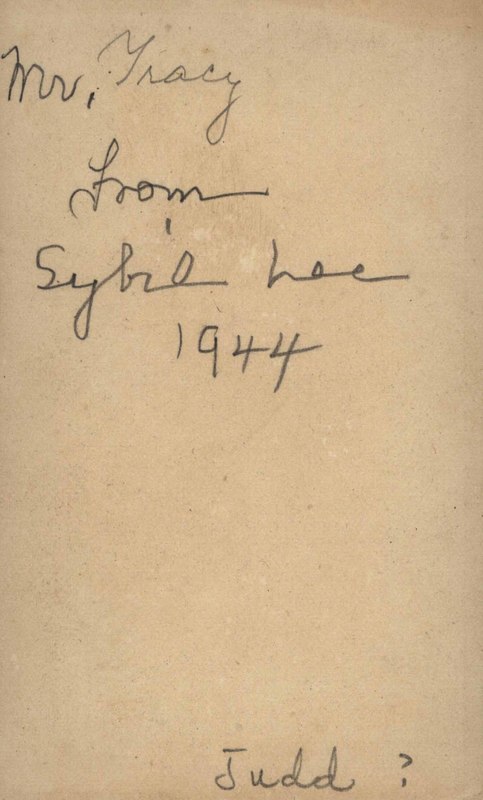 Mr. Tracy
From
Sybil Lee
1944
Judd ?